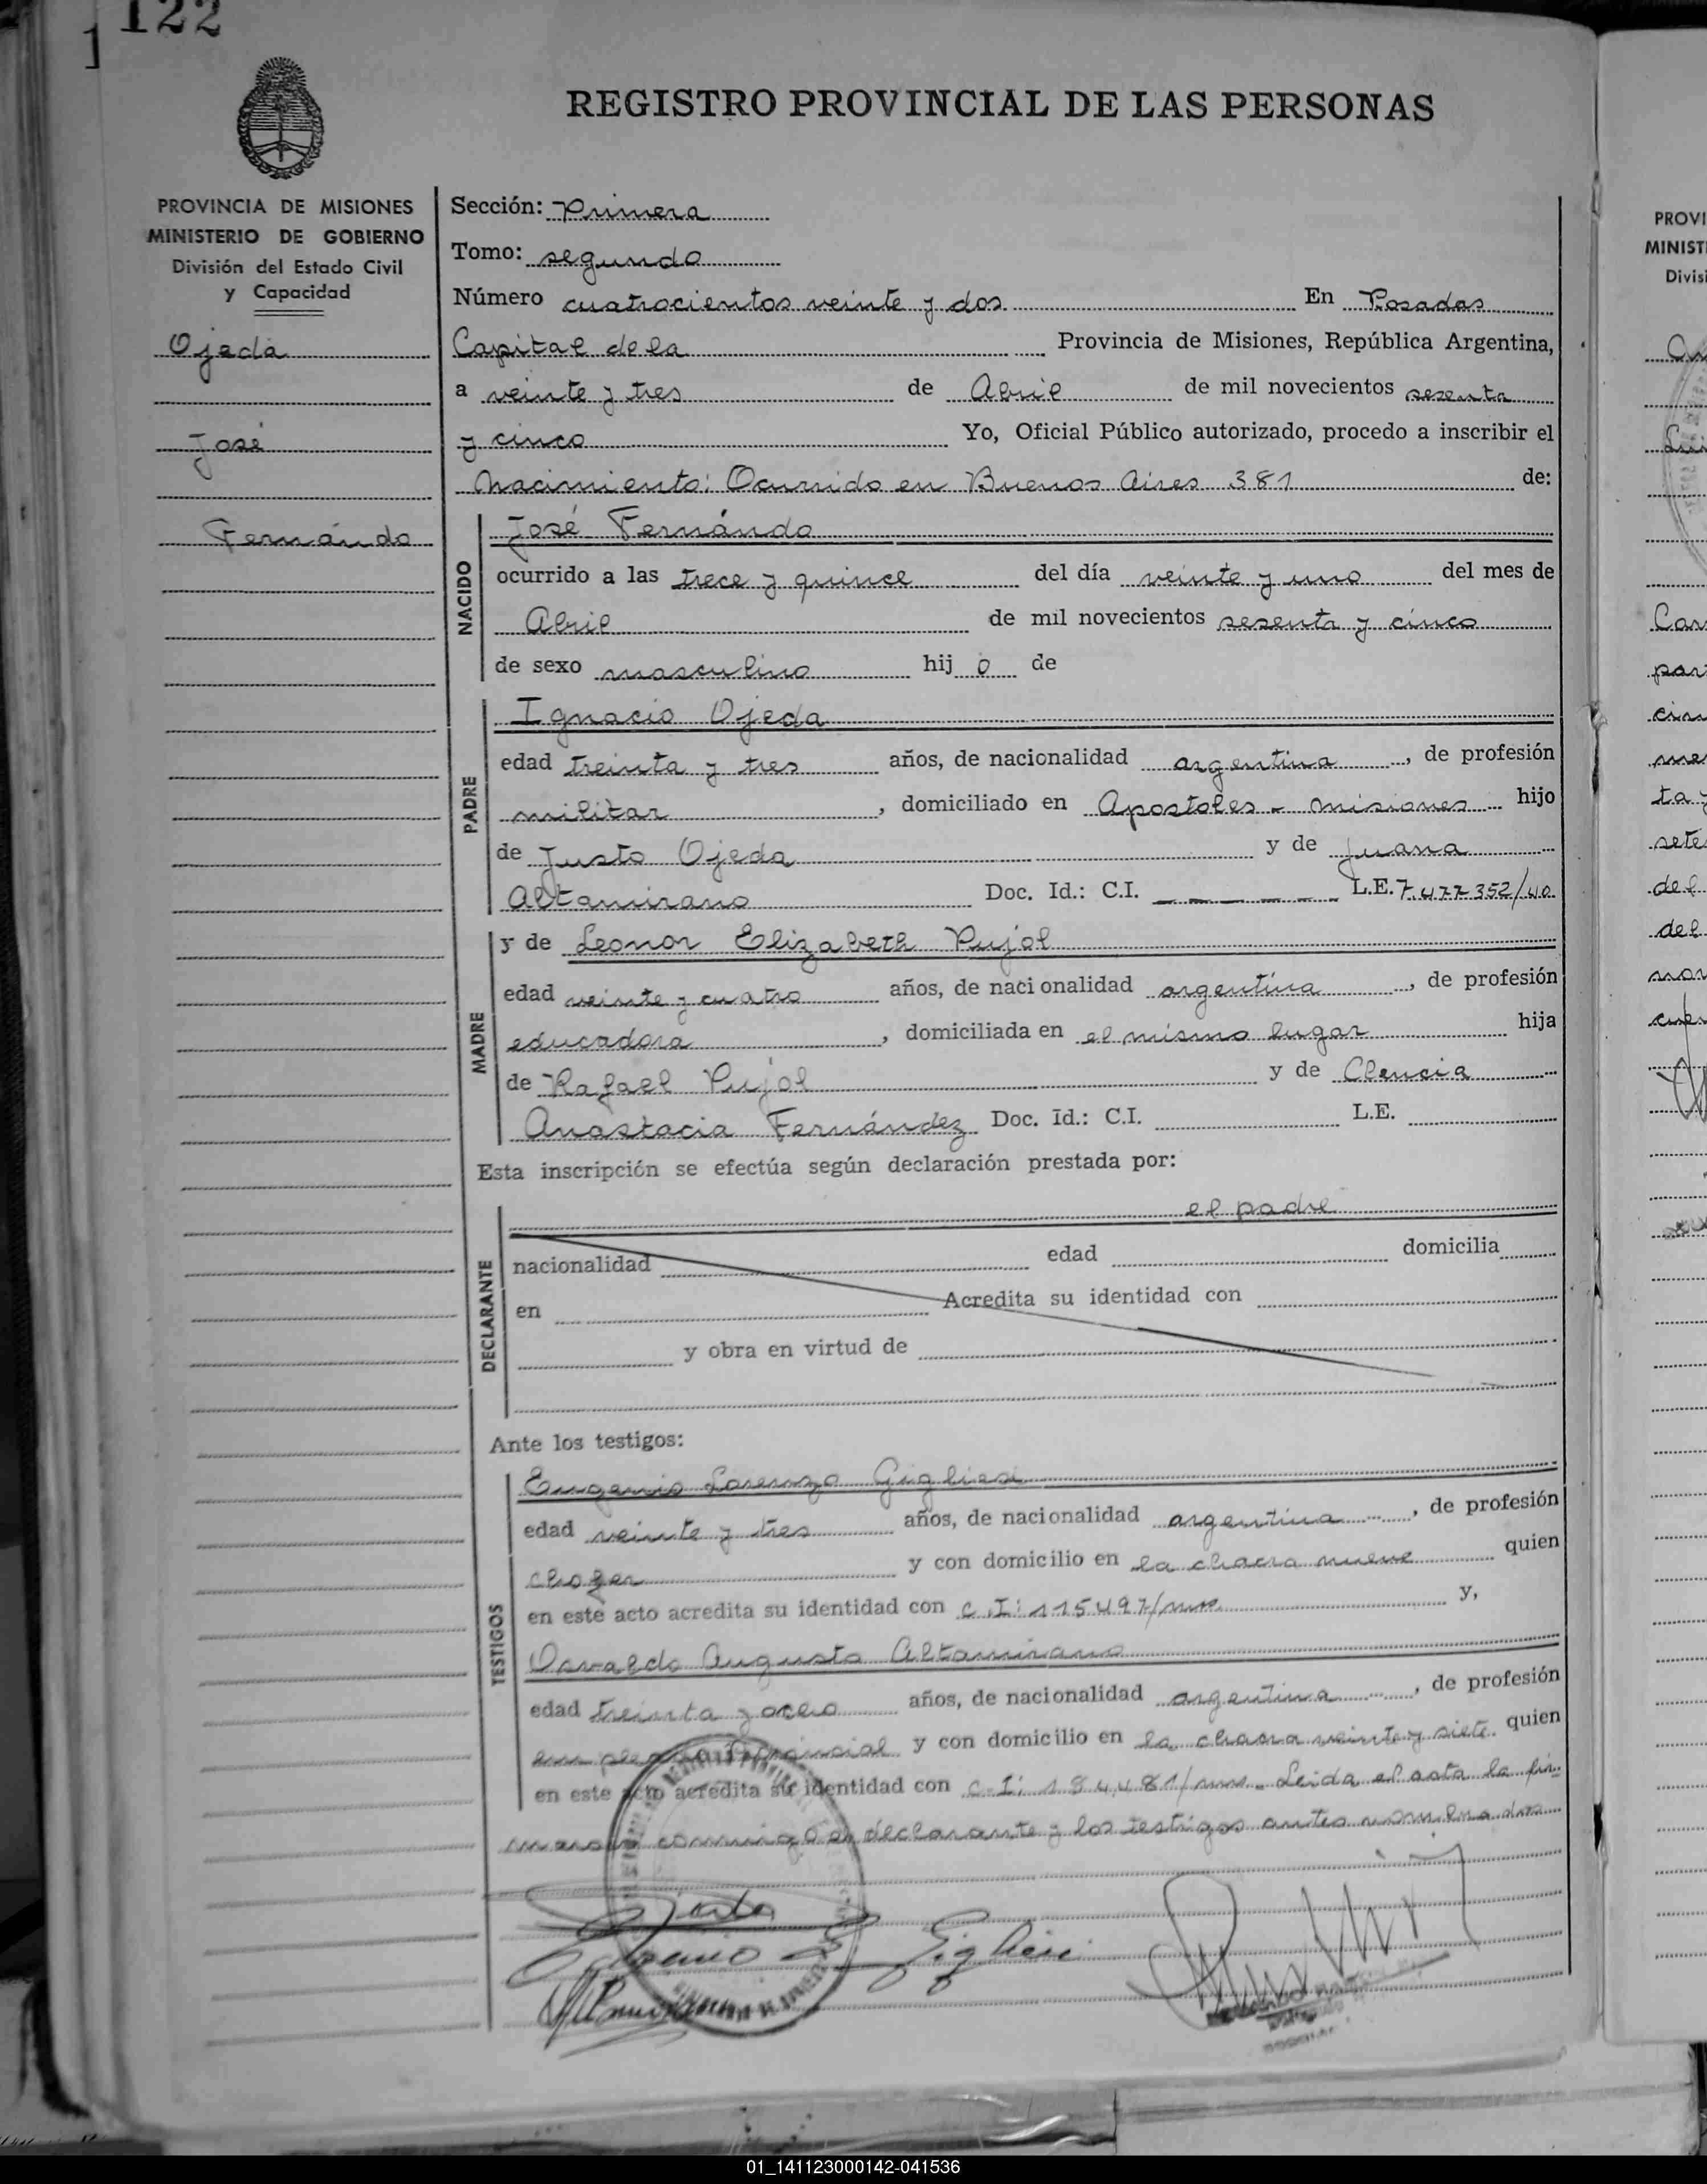 122
1
REGISTRO PROVINCIAL DE LAS PERSONAS
PROVINCIA DE MISIONES
MINISTERIO DE GOBIERNO
División del Estado Civil
y Capacidad
Ojeda
José
Fernándo
Sección: Primera
Tomo: segundo
Número cuatrocientos veinte y dos En Posadas
Capital de la Provincia de Misiones, República Argentina,
a veinte y tres de Abril de mil novecientos sesenta
y cinco Yo, Oficial Público autorizado, procedo a inscribir el
Nacimiento: Ocurrido en Buenos Aires 381 de:
NACIDO
José Fernándo
ocurrido a las trece y quince del día veinte y uno del mes de
Abril de mil novecientos sesenta y cinco
de sexo masculino hij o de
PADRE
Ignacio Ojeda
edad treinta y tres años, de nacionalidad argentina, de profesión
militar, domiciliado en Apostoles - Misiones hijo
de Justo Ojeda y de Juana
Altamirano Doc. Id.: C.I. — — — — — L.E. 7.477352/40
MADRE
y de Leonor Elizabeth Pujol
edad veinte y cuatro años, de nacionalidad argentina, de profesión
educadora, domiciliada en el mismo lugar hija
de Rafael Pujol y de Clencia
Anastacia Fernández Doc. Id.: C.I. L.E.
Esta inscripción se efectúa según declaración prestada por:
DECLARANTE
el padre
nacionalidad edad domicilia
en Acredita su identidad con
y obra en virtud de
Ante los testigos:
TESTIGOS
Eugenio Lorenzo Giglieri
edad veinte y tres años, de nacionalidad argentina, de profesión
chofer y con domicilio en la chacra nueve quien
en este acto acredita su identidad con C.I: 115497/mns y,
Osvaldo Augusto Altamirano
edad treinta y ocho años, de nacionalidad argentina, de profesión
empleado Provincial y con domicilio en la chacra veinte y siete quien
en este acto acredita su identidad con C.I: 184481/mns. Leida el acta la fir-
maron conmigo el declarante y los testigos antes nombrados
01_141123000142-041536